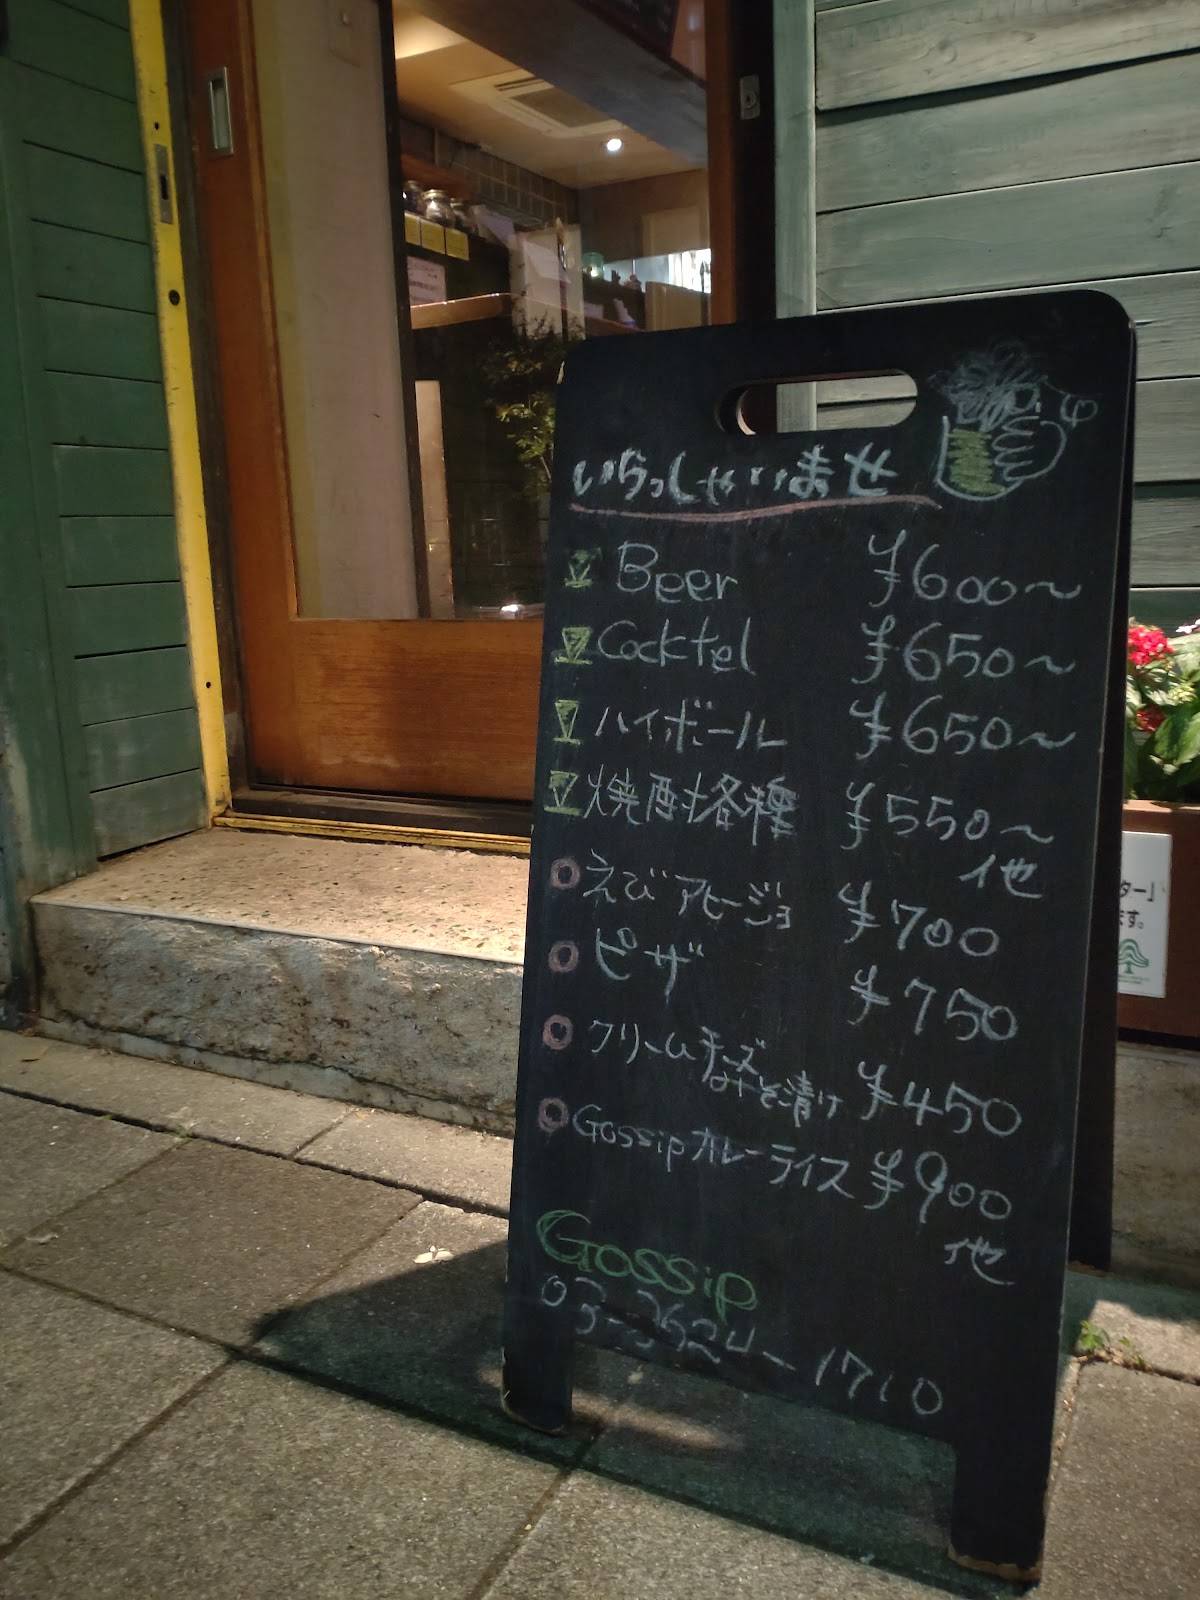 いらっしゃいませ
Beer ¥600~
Cocktel ¥650~
ハイボール ¥650~
焼酎各種 ¥550~
他
えびアヒージョ ¥700
ピザ ¥750
クリームチーズ
みそ漬け ¥450
Gossipカレーライス ¥900
他
Gossip
03-3624-1710
ター」
ます。